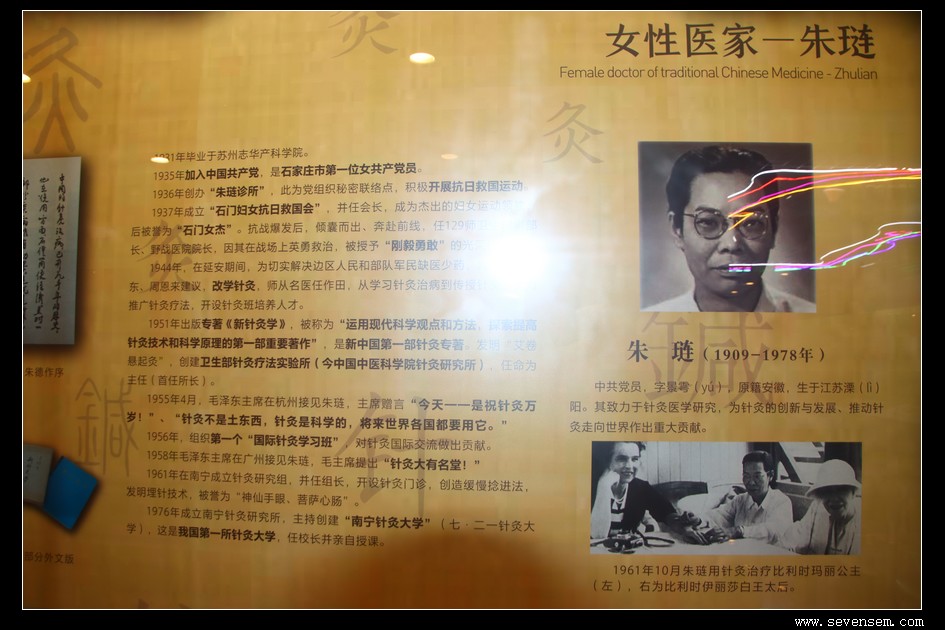 女性医家—朱琏
Female doctor of traditional Chinese Medicine - Zhulian
灸
灸
灸
鍼
鍼
1931年毕业于苏州志华产科学院。
1935年加入中国共产党，是石家庄市第一位女共产党员。
1936年创办“朱琏诊所”，此为党组织秘密联络点，积极开展抗日救国运动。
1937年成立“石门妇女抗日救国会”，并任会长，成为杰出的妇女运动
后被誉为“石门女杰”。抗战爆发后，倾囊而出、奔赴前线，任129师
长、野战医院院长，因其在战场上英勇救治，被授予“刚毅勇敢”的光
1944年，在延安期间，为切实解决边区人民和部队军民缺医少药
东、周恩来建议，改学针灸，师从名医任作田，从学习针灸治病到传播
推广针灸疗法，开设针灸班培养人才。
1951年出版专著《新针灸学》，被称为“运用现代科学观点和方法，探索提高
针灸技术和科学原理的第一部重要著作”，是新中国第一部针灸专著。发明“艾卷
悬起灸”，创建卫生部针灸疗法实验所（今中国中医科学院针灸研究所），任命为
主任（首任所长）。
1955年4月，毛泽东主席在杭州接见朱琏，主席赠言“今天一一是祝针灸万
岁！”、“针灸不是土东西，针灸是科学的，将来世界各国都要用它。”
1956年，组织第一个“国际针灸学习班”，对针灸国际交流做出贡献。
1958年毛泽东主席在广州接见朱琏，毛主席提出“针灸大有名堂！”
1961年在南宁成立针灸研究组，并任组长，开设针灸门诊，创造缓慢捻进法，
发明埋针技术，被誉为“神仙手眼、菩萨心肠”。
1976年成立南宁针灸研究所，主持创建“南宁针灸大学”（七·二一针灸大
学），这是我国第一所针灸大学，任校长并亲自授课。
朱 琏（1909-1978年）
中共党员，字景雩（yú），原籍安徽，生于江苏溧（lì）
阳。其致力于针灸医学研究，为针灸的创新与发展、推动针
灸走向世界作出重大贡献。
1961年10月朱琏用针灸治疗比利时玛丽公主
（左），右为比利时伊丽莎白王太后。
朱德作序
部分外文版
www.sevensem.com